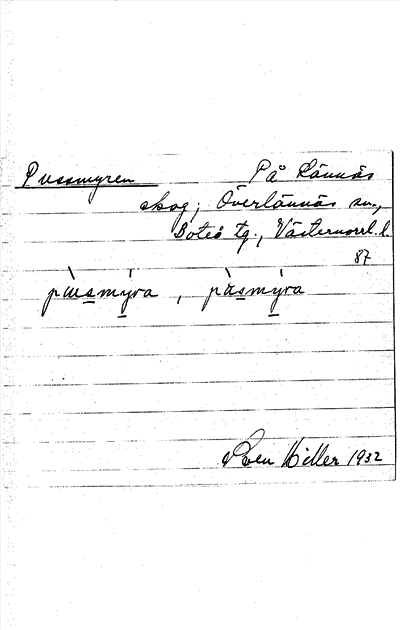 Pussmyren På Lännäs
skog; Överlännäs sn.,
Boteå tg., Västernorrl. l.
87
pùsmýra, pàsmýra
Sven Hiller 1932